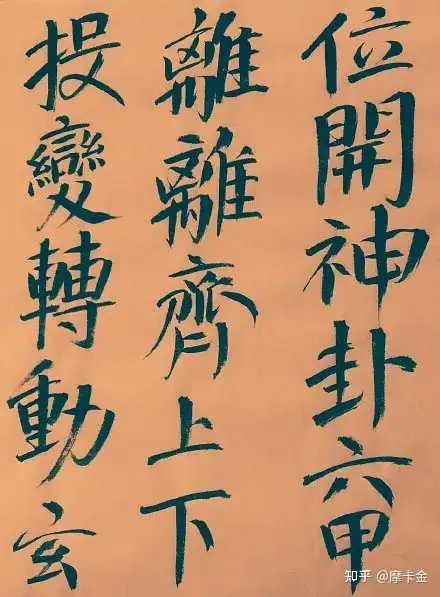 位開神卦六甲
離離齊上下
投變轉動玄
知乎 @摩卡金